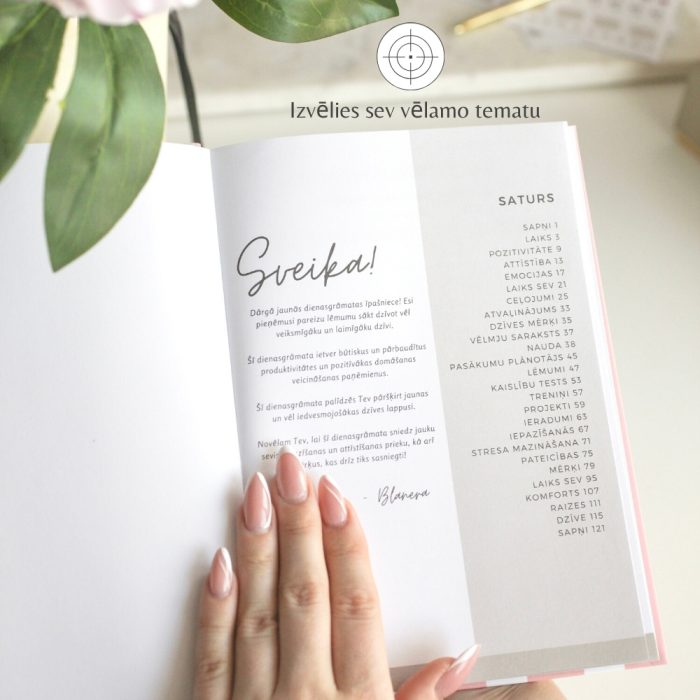 Izvēlies sev vēlamo tematu
Sveika!
Dārgā jaunās dienasgrāmatas īpašniece! Esi
pieņēmusi pareizu lēmumu sākt dzīvot vēl
veiksmīgāku un laimīgāku dzīvi.
Šī dienasgrāmata ietver būtiskus un pārbaudītus
produktivitātes un pozitīvākās domāšanas
veicināšanas paņēmienus.
Šī dienasgrāmata palīdzēs Tev pāršķirt jaunas
un vēl iedvesmojošākas dzīves lappusi.
Novēlam Tev, lai šī dienasgrāmata sniedz jauku
un attīstīšanas prieku, kā arī
kas drīz tiks sasniegti!
- Blanera
SATURS
SAPŅI 1
LAIKS 3
POZITIVITĀTE 9
ATTĪSTĪBA 13
EMOCIJAS 17
LAIKS SEV 21
CEĻOJUMI 25
ATVAĻINĀJUMS 33
DZĪVES MĒRĶI 35
VĒLMJU SARAKSTS 37
NAUDA 38
PASĀKUMU PLĀNOTĀJS 45
LĒMUMI 47
KAISLĪBU TESTS 53
TRENIŅI 57
PROJEKTI 59
IERADUMI 63
IEPAZĪŠANĀS 67
STRESA MAZINĀŠANA 71
PATEICĪBAS 75
MĒRĶI 79
LAIKS SEV 95
KOMFORTS 107
RAIZES 111
DZĪVE 115
SAPŅI 121